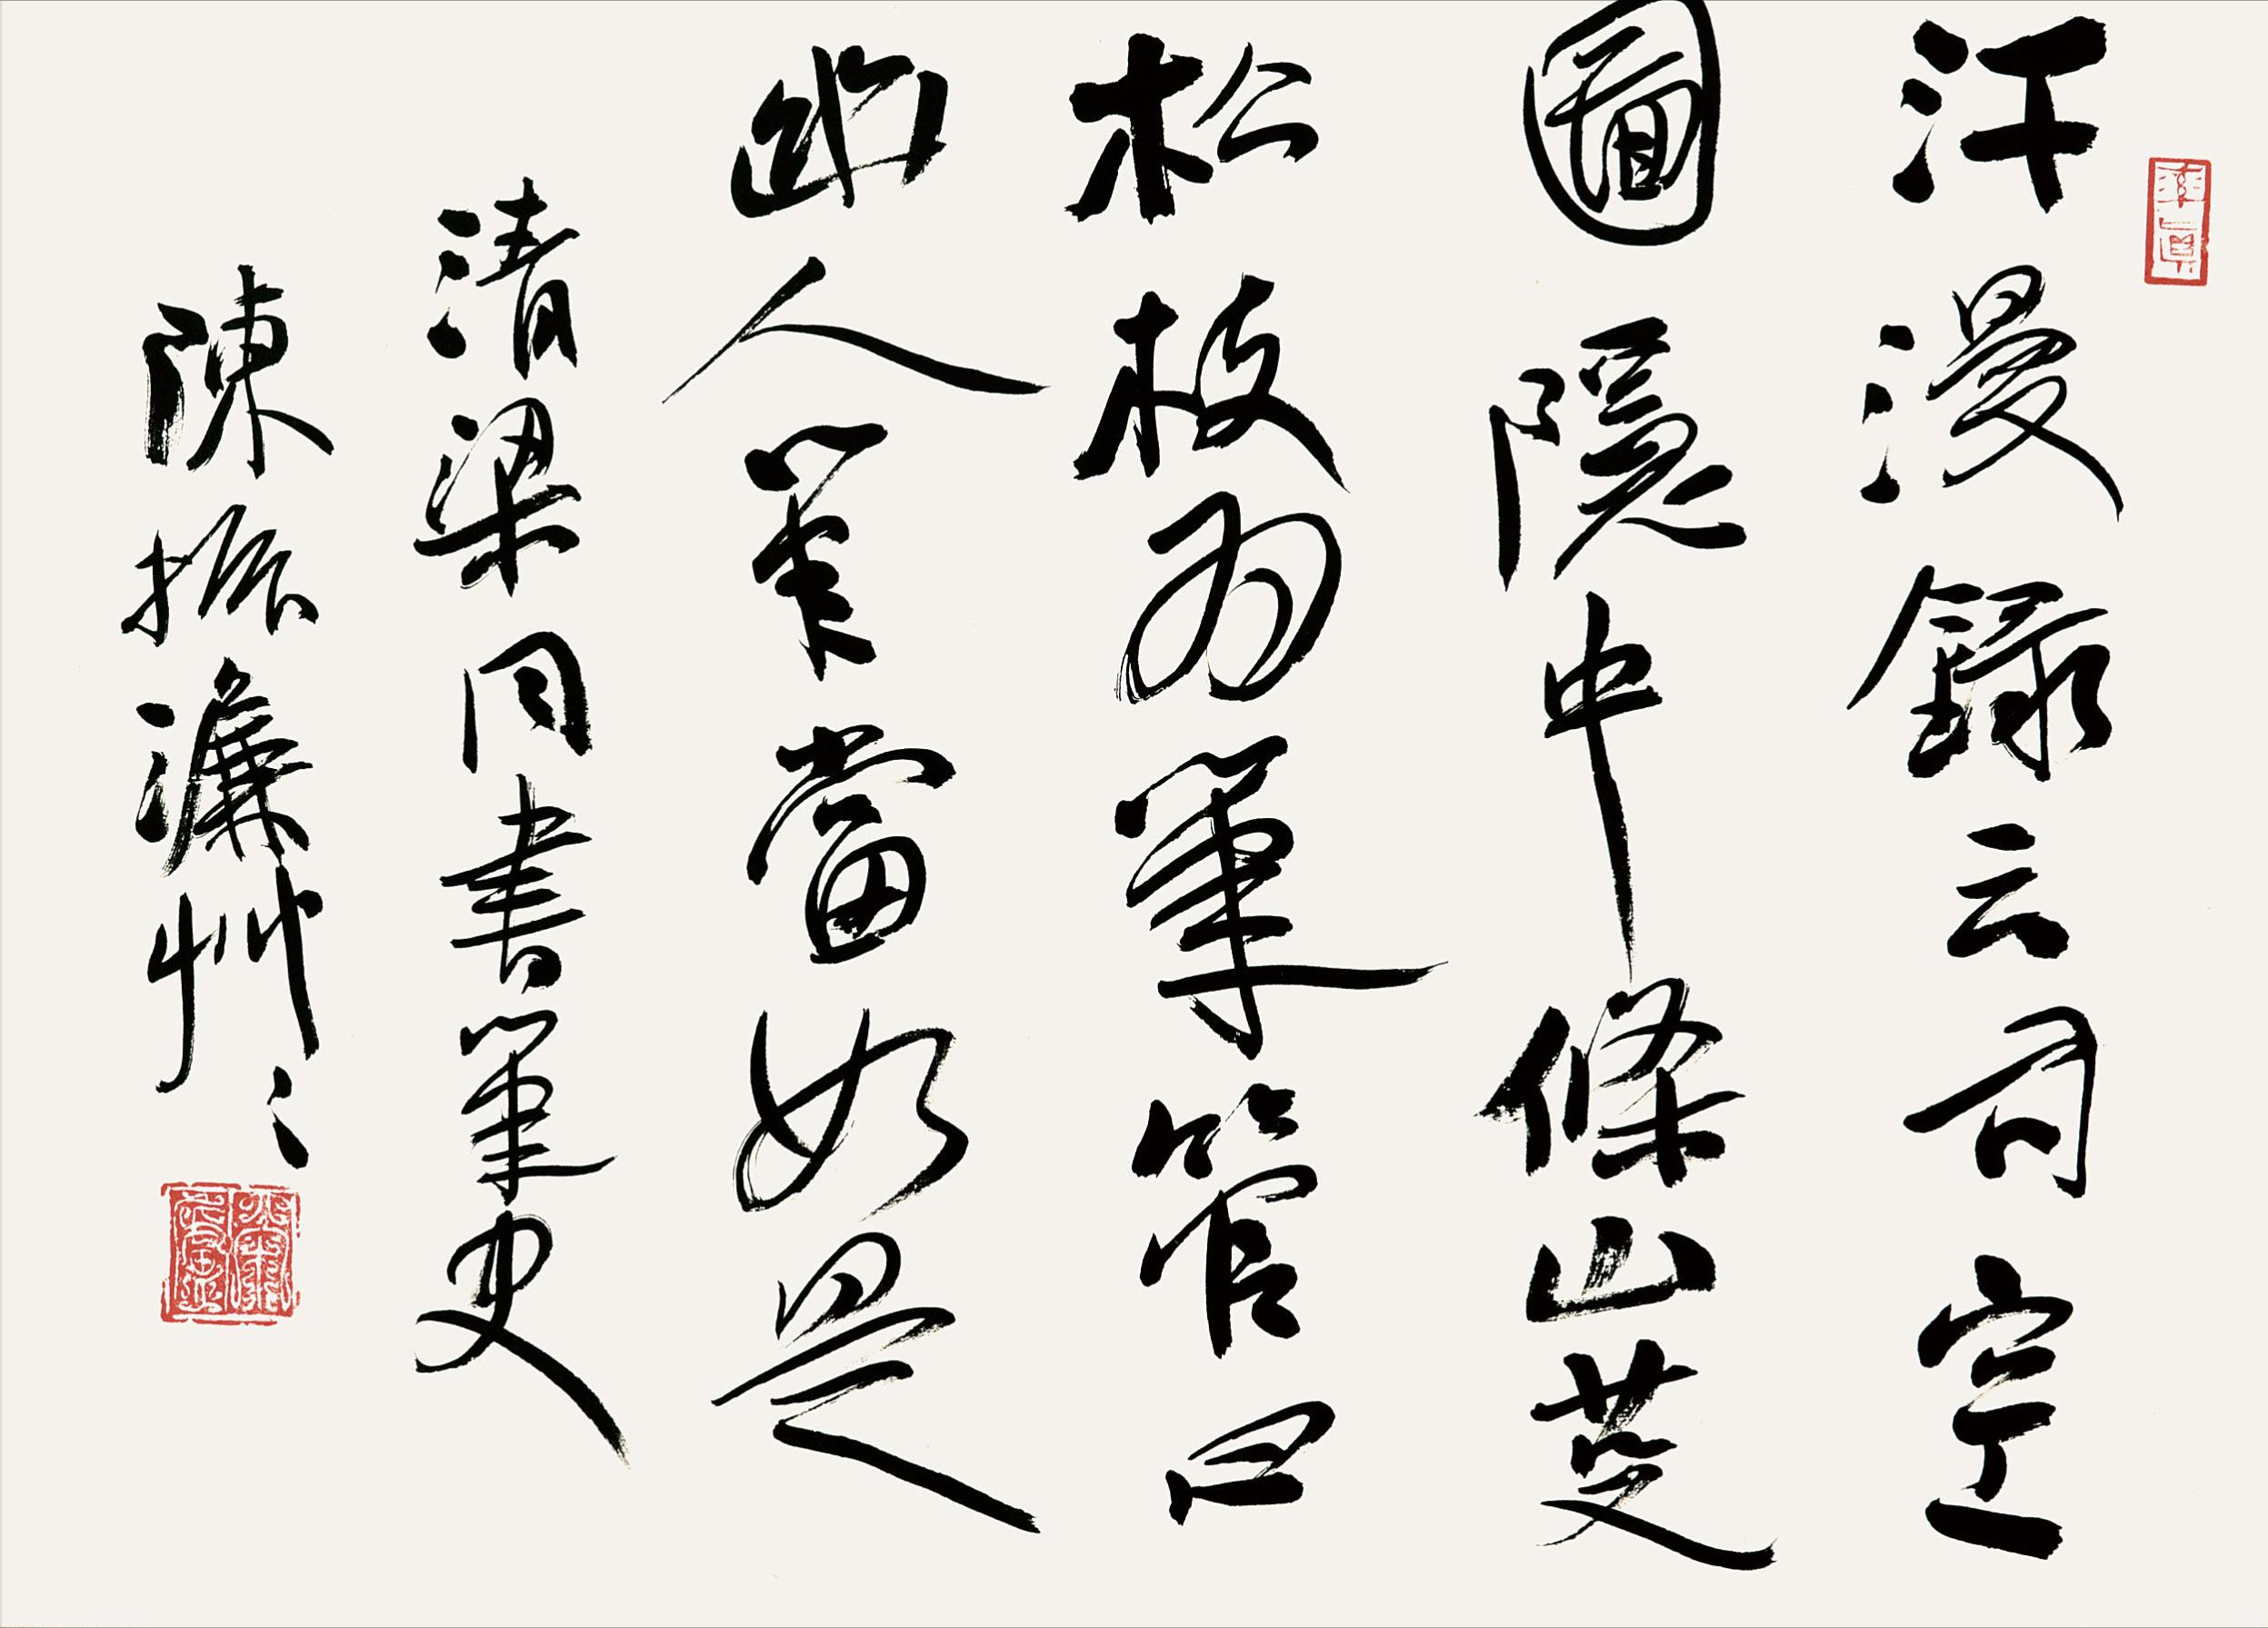 汗漫錄云司空
圖隱中條山芟
松枝為筆管曰
幽人筆當如是
清梁同書筆史
陳振濂艸〻